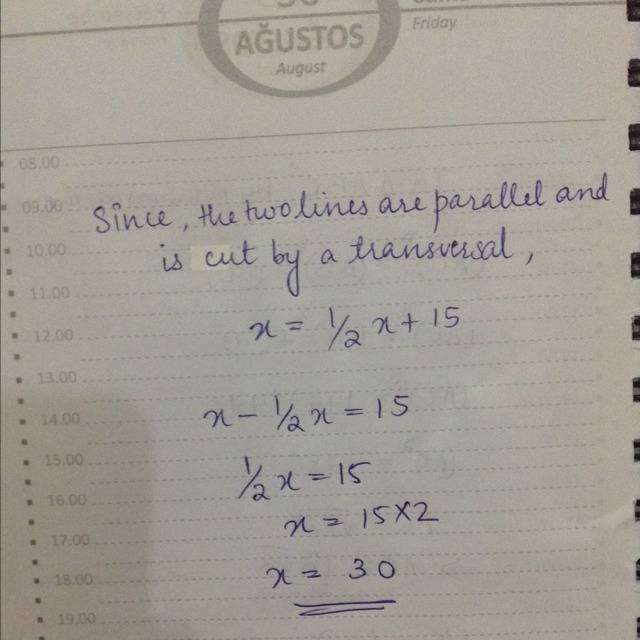 AĞUSTOS
August
Friday
08.00
09.00
Since, the two lines are parallel and
10.00
is cut by a transversal,
11.00
x = 1/2 x + 15
12.00
13.00
x - 1/2 x = 15
14.00
15.00
1/2 x = 15
16.00
x = 15 x 2
17.00
x = 30
18.00
19.00